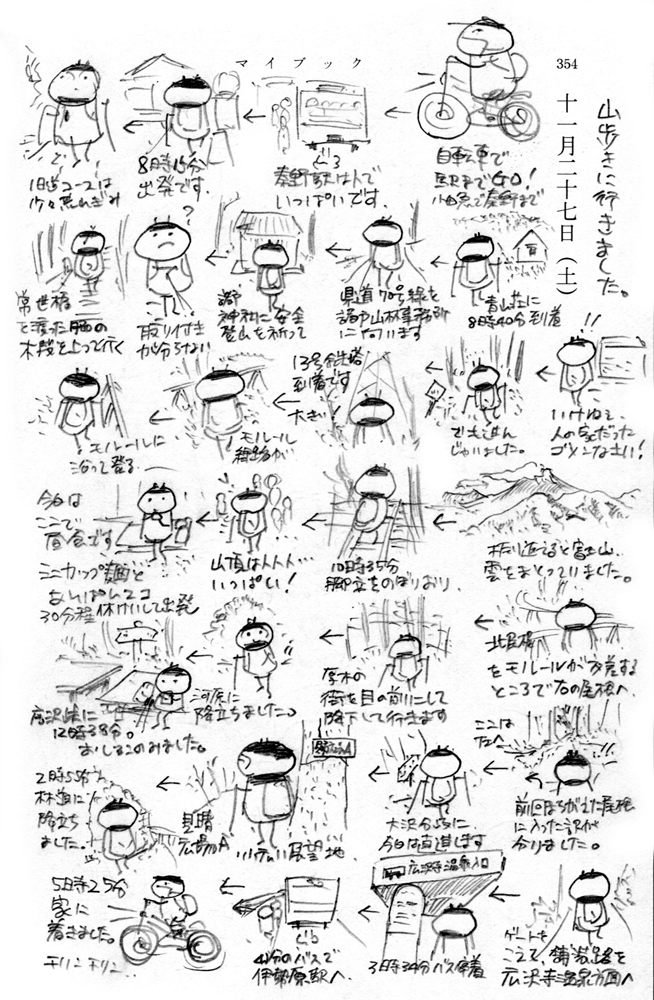 マイブック
354
十一月二十七日（土）
山歩きに行きました。
自転車で
駅までGO!
小田急で秦野まで
秦野駅は人で
いっぱいです。
8時15分
出発です。
青山荘に
8時40分到着
県道70号線を
諸戸山林事務所
に向います
諸戸
神社に安全
登山を祈って
?
取り付き
が分らない
常世橋
を渡った脇の
木段を上って行く
!!
いけねぇ
人の家だった
ゴメンなさい!
でも進ん
じゃいました。
13号鉄塔
到着です
大きい!
モノレール
線路が
モノレールに
沿って登る
振り返ると富士山
雲をまとっていました。
10時35分
山頂は人人人
いっぱい!
今日は
ここで
昼食です
ミニカップ麺と
あんぱん2コ
30分程休けいして出発
北尾根
をモノレールが交差する
ところで右の尾根へ
厚木の
街を目の前にして
降下して行きます
河原に
降立ちました。
唐沢峡に
12時38分。
おしるこのみました。
ここは
左へ
前回まちがえた尾根
に入った訳が
分りました。
大沢分岐に
今日は直進します
見晴広場A
見晴
広場A
いい展望地
2時55分
林道に
降立ち
ました。
ゲートを
こえて、舗装路を
広沢寺温泉方面へ
広沢寺温泉入口
3時34分バス停着
41分のバスで
伊勢原駅へ
5時25分
家に
着きました。
チリンチリン